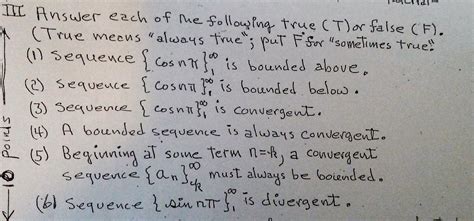 III Answer each of the following true (T) or false (F).
(True means "always true"; put F for "sometimes true."
(1) Sequence {cos nπ}₁^∞ is bounded above.
(2) Sequence {cos nπ}₁^∞ is bounded below.
(3) Sequence {cos nπ}₁^∞ is convergent.
(4) A bounded sequence is always convergent.
(5) Beginning at some term n=k, a convergent
sequence {aₙ}ₖ^∞ must always be bounded.
(6) Sequence {sin nπ}₁^∞ is divergent.
10 Points